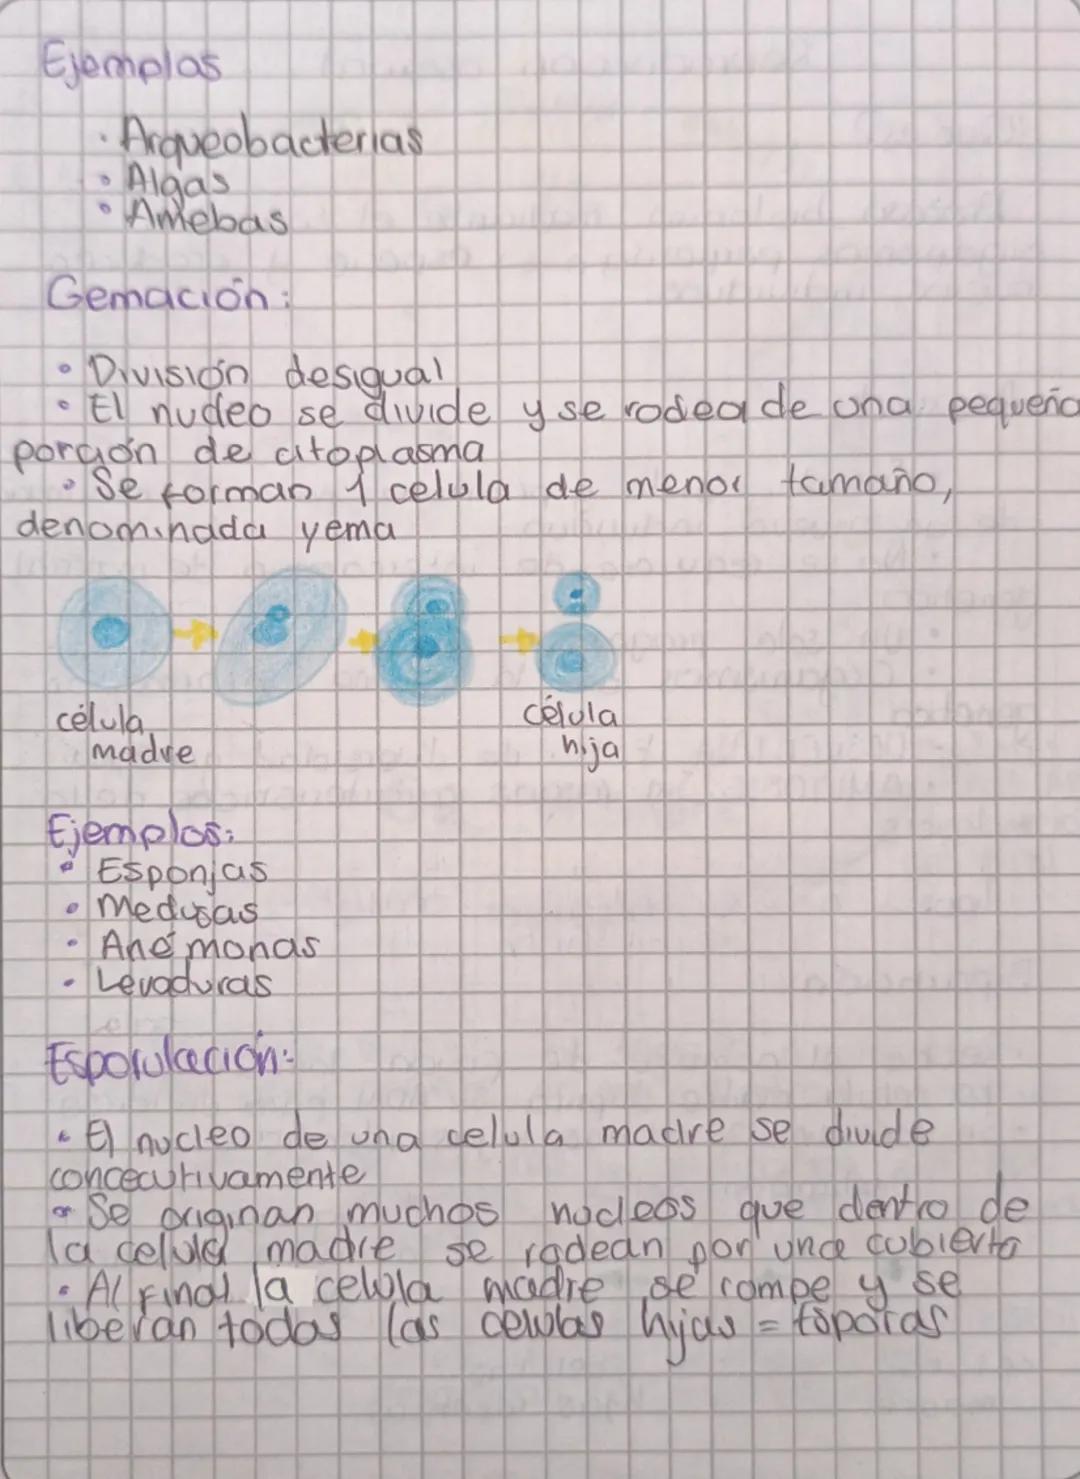 Ejemplos
· Arqueobacterias
· Algas
· Amebas
Gemación:
• División desigual
• El nucleo se divide y se rodea de una pequeña
porción de citoplasma
• Se forman 1 celula de menor tamaño,
denominada yema
célula
madre
célula
hija
Ejemplos:
• Esponjas
• Medusas
• Anémonas
• Levaduras
Esporulación:
• El nucleo de una celula madre se divide
concecutivamente
• Se originan muchos nucleos que dentro de
la celula madre se rodean por una cubierta
• Al final la celula madre se rompe y se
liberan todas las celulas hijas = Esporas